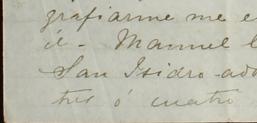 grafiarme me e
él - Manuel l
San Isidro ado
tres ó cuatro